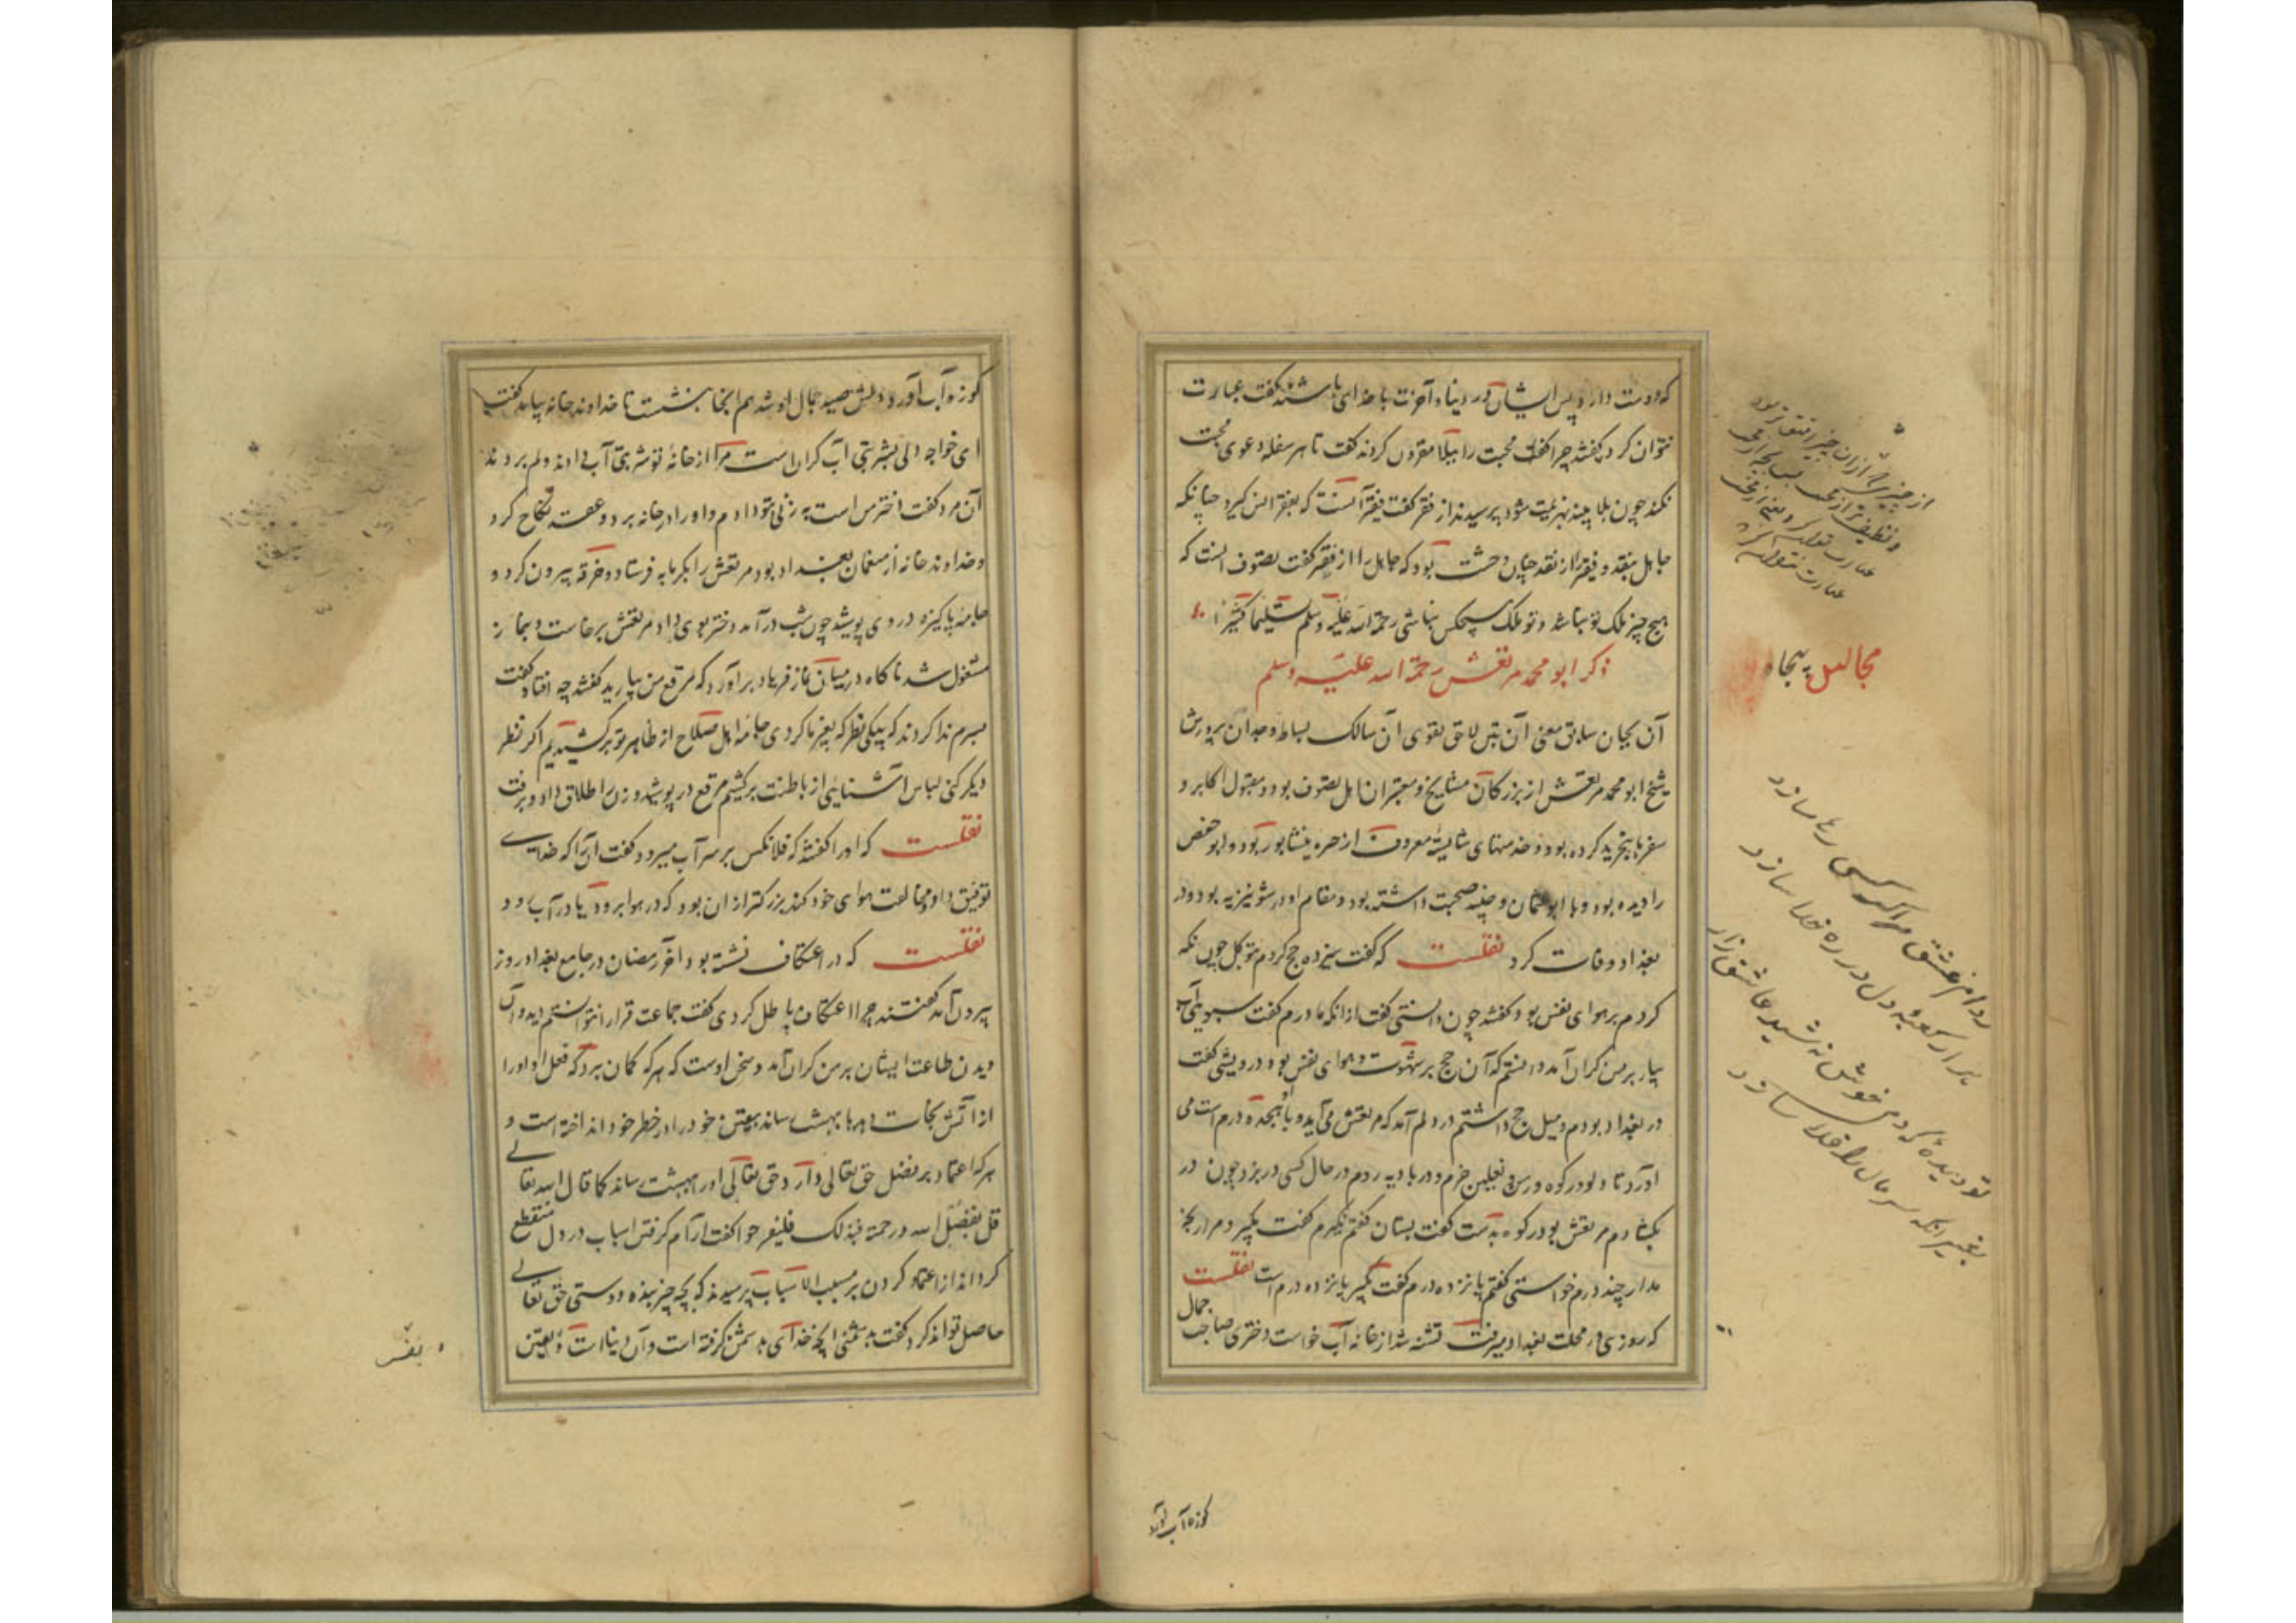 که دوست دارد پس ایشان در دنیا و آخرت با خدای باشند گفت عبارت
نتوان کرد گفتند چرا گفت محبت را ببلا مقرون کردند گفت تا هر سفله دعوی محبت
نکند چون بلا بیند بهزیمت شود پرسیدند از فقر گفت فقیر آنست که بفقر انس گیرد چنانکه
جاهل بنقد و فقیر را از نقد چنان وحشت بود که جاهل را از فقر گفت تصوف آنست که
هیچ چیز ملک تو نباشد و تو ملک هیچکس نباشی رحمة الله علیه وسلم تسلیما کثیرا
ذکر ابو محمد مرتعش رحمة الله علیه وسلم
مجالس پنجاه
آن بجان سابق معنی آن بتن لاحق تقوی آن سالک بساط وجدان پرورش
شیخ ابو محمد مرتعش از بزرگان مشایخ و معتبران اهل تصوف بود و مقبول اکابر و
سفرها بتجرید کرده بود و خدمتهای شایسته معروف از حیره نیشابور بود و ابو حفص
را دیده بود و با ابو عثمان و جنید صحبت داشته بود و مقام او در شونیزیه بود و در
بغداد وفات کرد نقلست که گفت سیزده حج کردم بتوکل چون نگه
کردم بر هوای نفس بود گفتند چون دانستی گفت از آنکه مادرم گفت سبویی آب
بیار بر من گران آمد دانستم که آن حج بر شهوت و هوای نفس بود درویشی گفت
در بغداد بودم و میل حج داشتم در دلم آمد که مرتعش می آید و پانجده درم است می
آورد تا دلو و رکوه و رسن و نعلین خرم و در بادیه روم در حال کسی در بزد چون در
بگشادم مرتعش بود رکوه بدست گفت بستان گفتم نگیرم گفت بگیر و مرا رنجه
مدار چند درم خواستی گفتم پانزده درم گفت بگیر پانزده درم است نقلست
که روزی در محلت بغداد میرفت تشنه شد از خانه آب خواست دختری صاحب جمال
کوزه آب آورد
کوزه آب آورد دلش صید جمال او شد هم آنجا بنشست تا خداوند خانه بیامد گفت
ای خواجه دلی بشربتی آب گران است مرا از خانه تو شربتی آب دادند و دلم بردند
آن مرد گفت دختر من است بزنی بتو دادم و او را در خانه برد و عقد نکاح کرد
و خداوند خانه از منعمان بغداد بود مرتعش را بگرمابه فرستاد و خرقه بیرون کرد و
جامه پاکیزه در وی پوشید چون شب درآمد دختر بوی داد مرتعش برخاست و بنماز
مشغول شد ناگاه در میان نماز فریاد برآورد که مرقع من بیارید گفتند چه افتاد گفت
بسرم ندا کردند که بیکی نظر که بغیر ما کردی جامه اهل صلاح از ظاهر تو برکشیدیم اگر نظر
دیگر کنی لباس آشنایی از باطنت برکشیم مرقع درپوشید و زن را طلاق داد و برفت
نقلست که او را گفتند که فلانکس بر سر آب میرود گفت آنرا که خدای
توفیق داد و مخالفت هوای خود کند بزرگتر از آن بود که در هوا برود یا در آب رود
نقلست که در اعتکاف نشسته بود آخر رمضان در جامع بغداد روز
بیرون آمد گفتند چرا اعتکاف باطل کردی گفت جماعت قرا را نتوانستم دید و آن
دیدن طاعت ایشان بر من گران آمد و سخن اوست که هر که گمان برد که فعل او او را
از آتش نجات دهد یا بهشت رساند بیقین خود را در خطر خود انداخته است و
هر که اعتماد بر فضل حق تعالی دارد حق تعالی او را ببهشت رساند کما قال الله تعالی
قل بفضل الله و رحمته فبذلک فلیفرحوا گفت آرام گرفتن اسباب در دل منقطع
گرداند از اعتماد کردن بر مسبب الاسباب پرسیدند که بچه چیز بنده دوستی حق تعالی
حاصل تواند کرد گفت به دشمنی آنچه خدای بدشمن گرفته است و آن دنیا است و یقین
و نفس